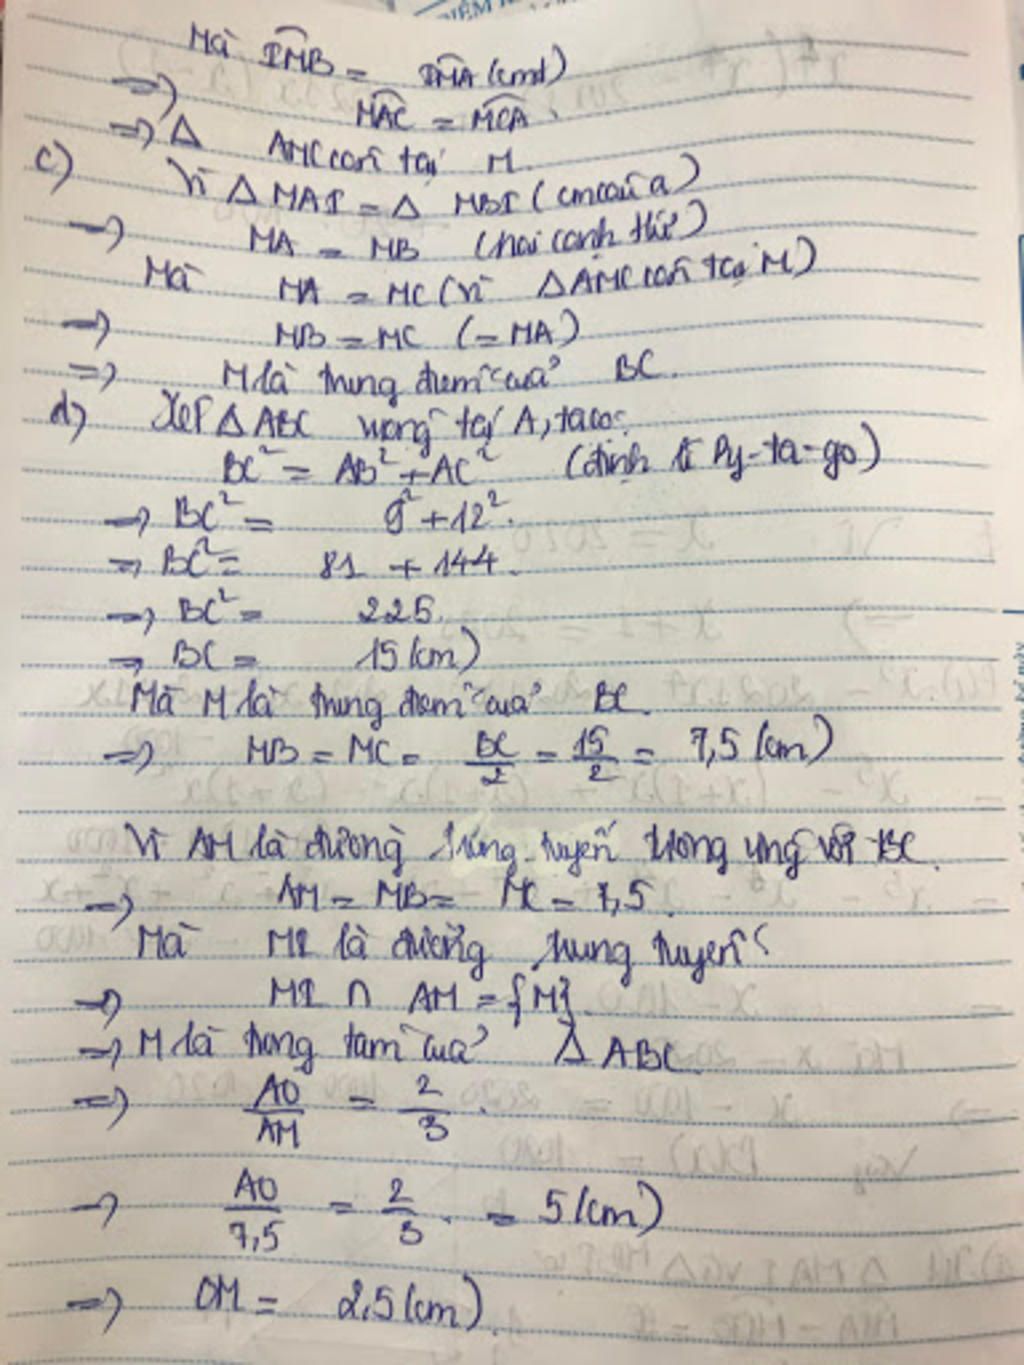 Mà IMB = IMA (cmt)
=> MAC = MCA.
=> Δ AMC cân tại M.
c) Vì Δ MAI = Δ MBI (cm câu a)
=> MA = MB (hai cạnh t/ứ)
Mà MA = MC (vì ΔAMC cân tại M)
=> MB = MC (= MA)
=> M là trung điểm của BC.
d) Xét Δ ABC vuông tại A, ta có:
BC² = AB² + AC² (định lí Py-ta-go)
=> BC² = 9² + 12².
=> BC² = 81 + 144.
=> BC² = 225.
=> BC = 15 (cm)
Mà M là trung điểm của BC.
=> MB = MC = BC/2 = 15/2 = 7,5 (cm)
Vì AM là đường trung tuyến tương ứng với BC.
=> AM = MB = MC = 7,5.
Mà MI là đường trung tuyến
=> MI ∩ AM = {M}
=> M là trọng tâm của Δ ABC.
=> AO/AM = 2/3.
=> AO/7,5 = 2/3. = 5 (cm)
=> OM = 2,5 (cm).